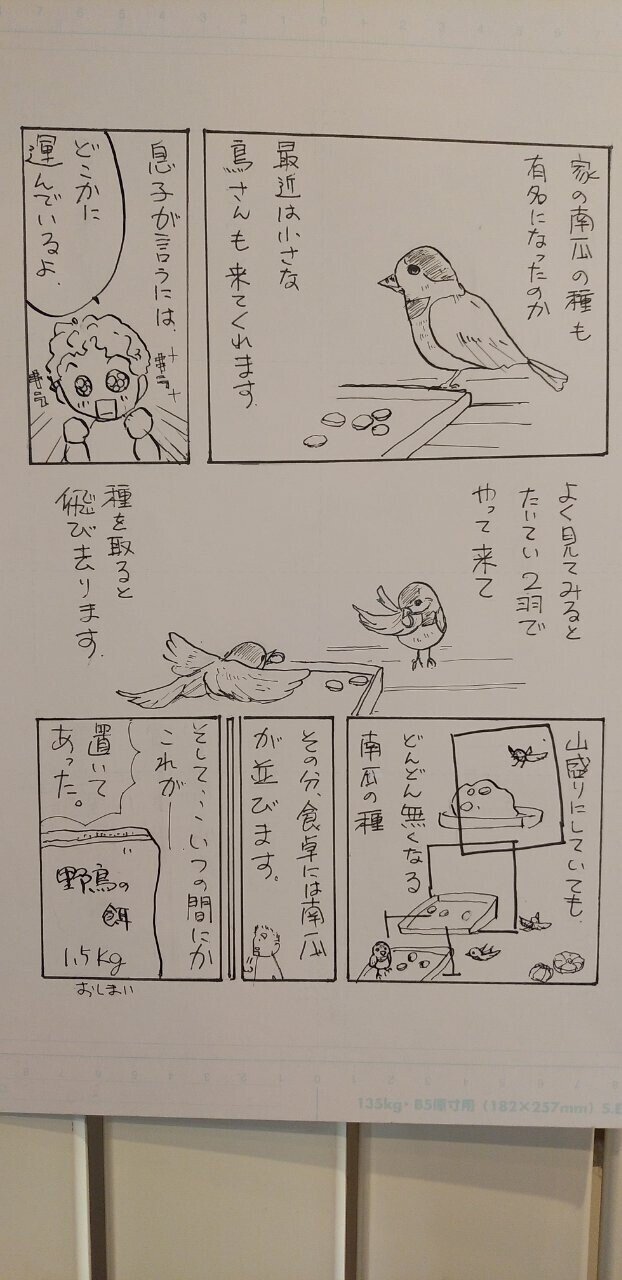 家の南瓜の種も
有名になったのか
最近は小さな
鳥さんも来てくれます。
息子が言うには、
どこかに
運んでいるよ。
キラ
キラ
よく見てみると
たいてい2羽で
やって来て
種を取ると
飛び去ります。
山盛りにしていても、
どんどん無くなる
南瓜の種
その分、食卓には南瓜
が並びます。
そして、、いつの間にか
これが――
置いて
あった。
野鳥の
餌
1.5kg
おしまい
135kg・B5原寸用(182×257mm)